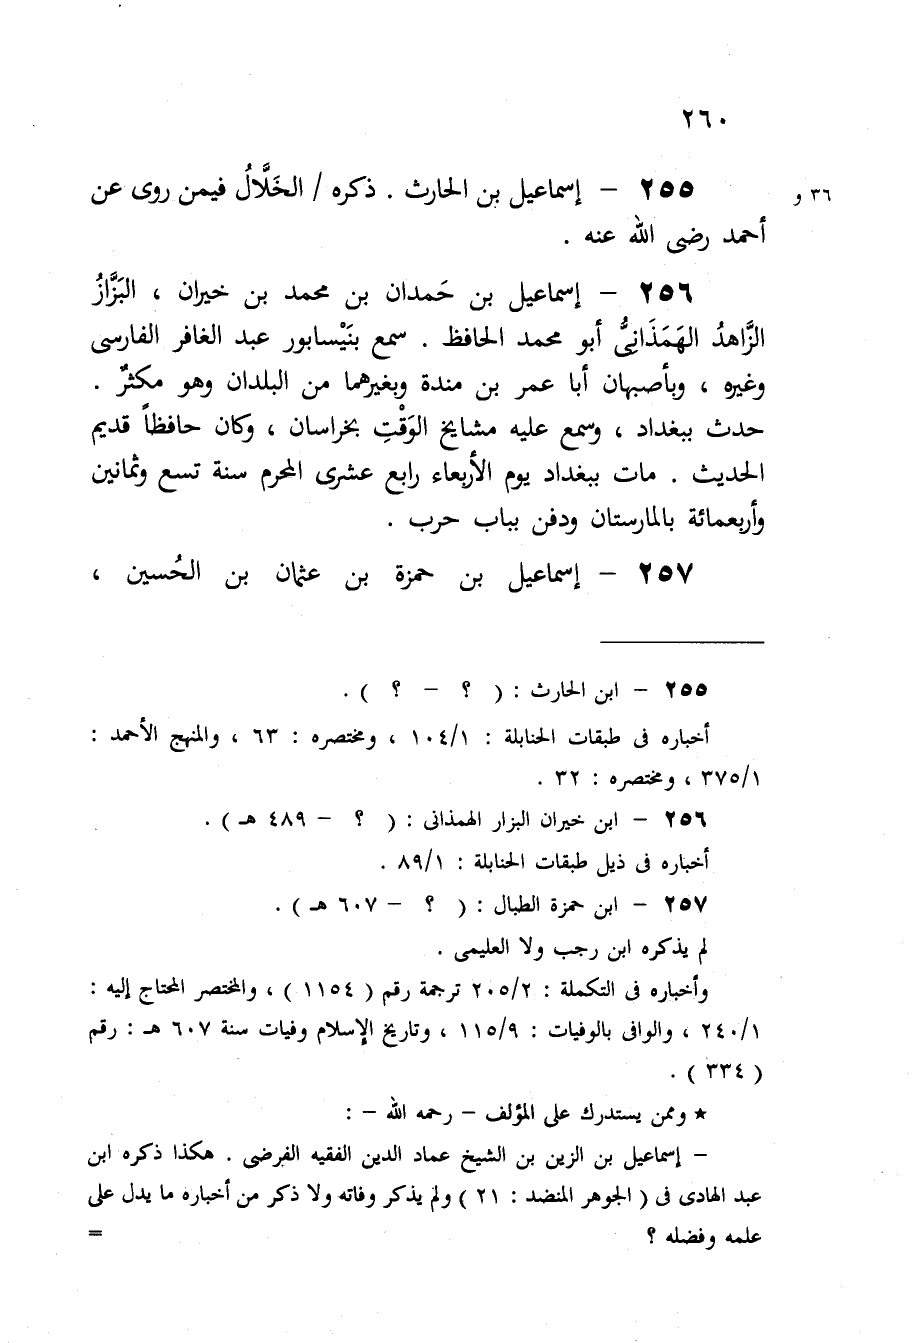 ٢٦٠
٢٥٥ – إسماعيل بن الحارث . ذكره / الخَلَّالُ فيمن روى عن
٣٦ و
أحمد رضى الله عنه .
٢٥٦ – إسماعيل بن حَمدان بن محمد بن خيران ، البَزَّازُ
الزَّاهدُ الهَمَذَانِىُّ أبو محمد الحافظ . سمع بنَيْسابور عبد الغافر الفارسى
وغيره ، وبأصبهان أبا عمر بن مندة وبغيرهما من البلدان وهو مكثرٌ .
حدث ببغداد ، وسمع عليه مشايخ الوَقْتِ بخراسان ، وكان حافظاً قديم
الحديث . مات ببغداد يوم الأربعاء رابع عشرى المحرم سنة تسع وثمانين
وأربعمائة بالمارستان ودفن بباب حرب .
٢٥٧ – إسماعيل بن حمزة بن عثمان بن الحُسين ،
٢٥٥ – ابن الحارث : ( ؟ – ؟ ) .
أخباره فى طبقات الحنابلة : ١٠٤/١ ، ومختصره : ٦٣ ، والمنهج الأحمد :
٣٧٥/١ ، ومختصره : ٣٢ .
٢٥٦ – ابن خيران البزار الهمذانى : ( ؟ – ٤٨٩ هـ ) .
أخباره فى ذيل طبقات الحنابلة : ٨٩/١ .
٢٥٧ – ابن حمزة الطبال : ( ؟ – ٦٠٧ هـ ) .
لم يذكره ابن رجب ولا العليمى .
وأخباره فى التكملة : ٢٠٥/٢ ترجمة رقم ( ١١٥٤ ) ، والمختصر المحتاج إليه :
٢٤٠/١ ، والوافى بالوفيات : ١١٥/٩ ، وتاريخ الإسلام وفيات سنة ٦٠٧ هـ : رقم
( ٣٣٤ ) .
★ وممن يستدرك على المؤلف – رحمه الله – :
– إسماعيل بن الزين بن الشيخ عماد الدين الفقيه الفرضى . هكذا ذكره ابن
عبد الهادى فى ( الجوهر المنضد : ٢١ ) ولم يذكر وفاته ولا ذكر من أخباره ما يدل على
علمه وفضله ؟ =